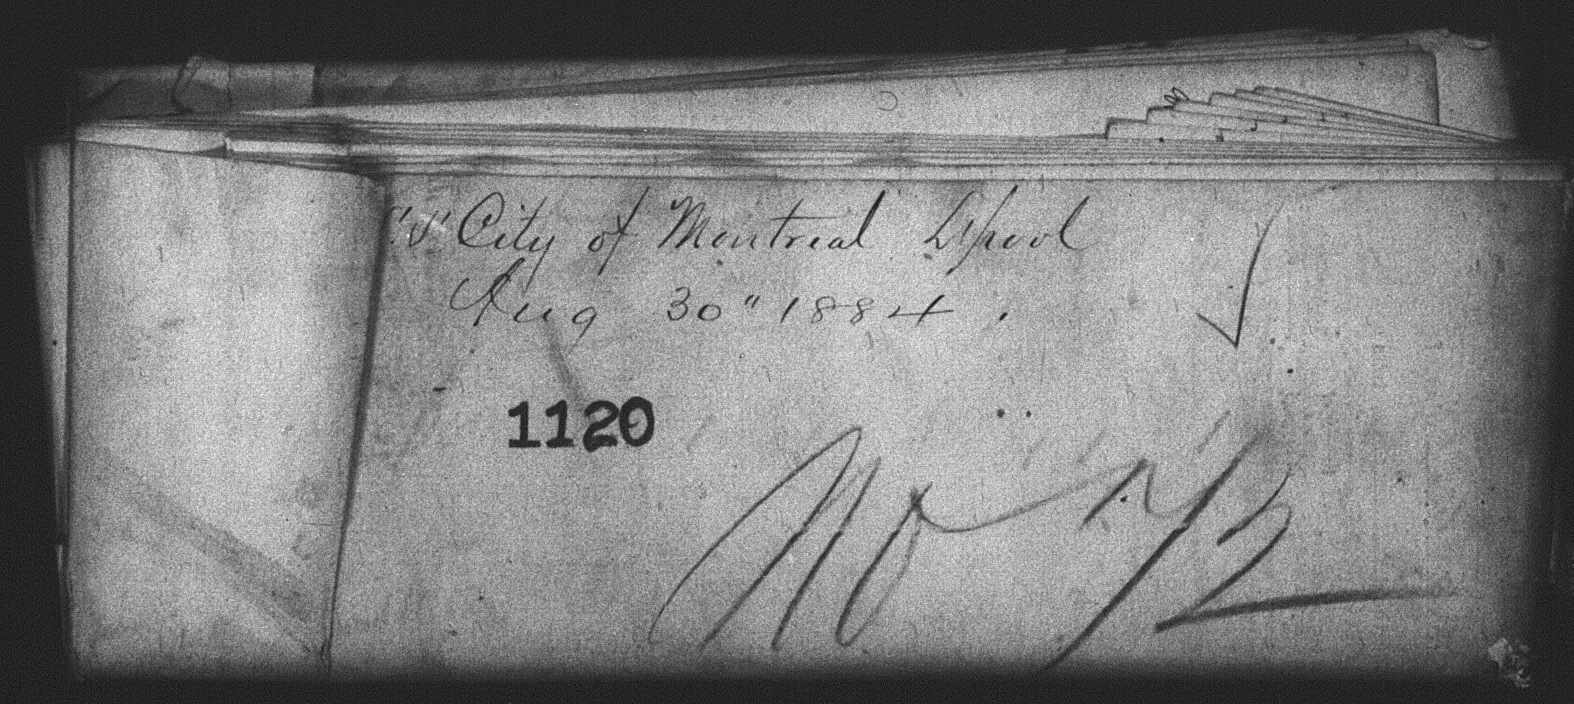 City of Montreal Lpool
Aug 30" 1884.
1120
No 72